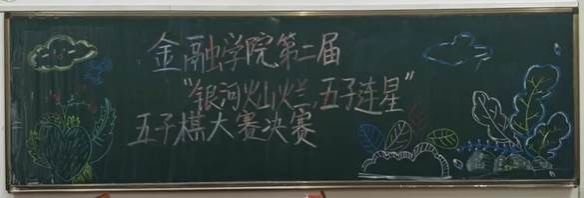 金融学院第二届
"银河灿烂,五子连星"
五子棋大赛决赛